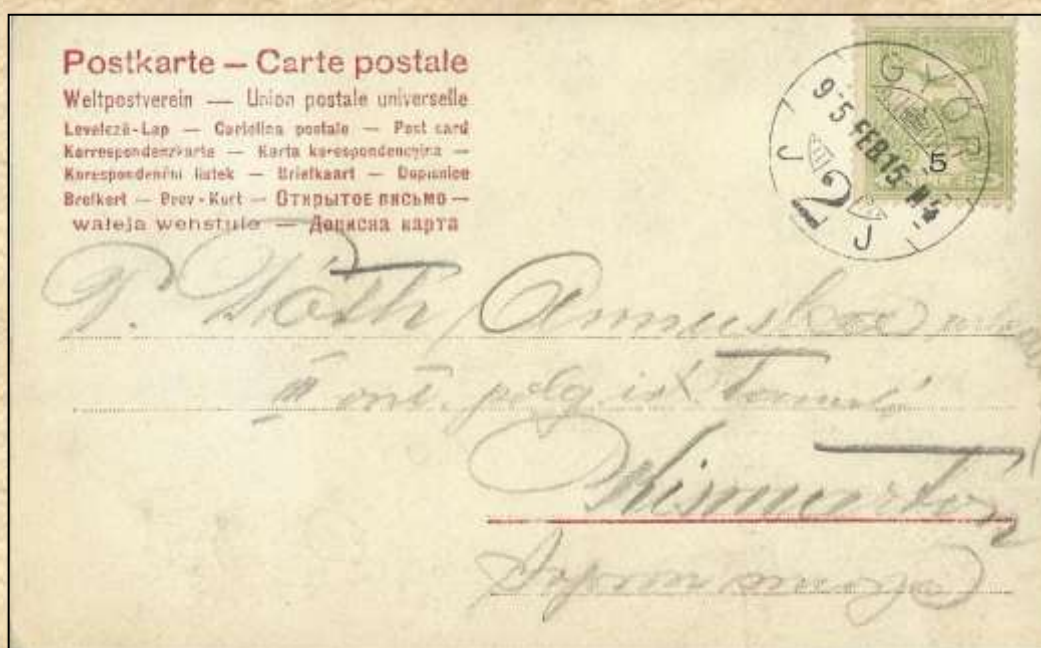 Postkarte — Carte postale
Weltpostverein — Union postale universelle
Levelező-Lap — Cartolina postale — Post card
Korrespondenzkarte — Karta korespondencyjna —
Korespondenční listek — Briefkaart — Dopisnice
Brefkort — Brev-Kort — Открытое письмо —
waleja wehstule — Дописна карта
GYŐR
5
9·5 FEB 15·N4
J 2 J
P. Tóth Annuska
III polg isk Tanuló
Kismarton
Sopron megye